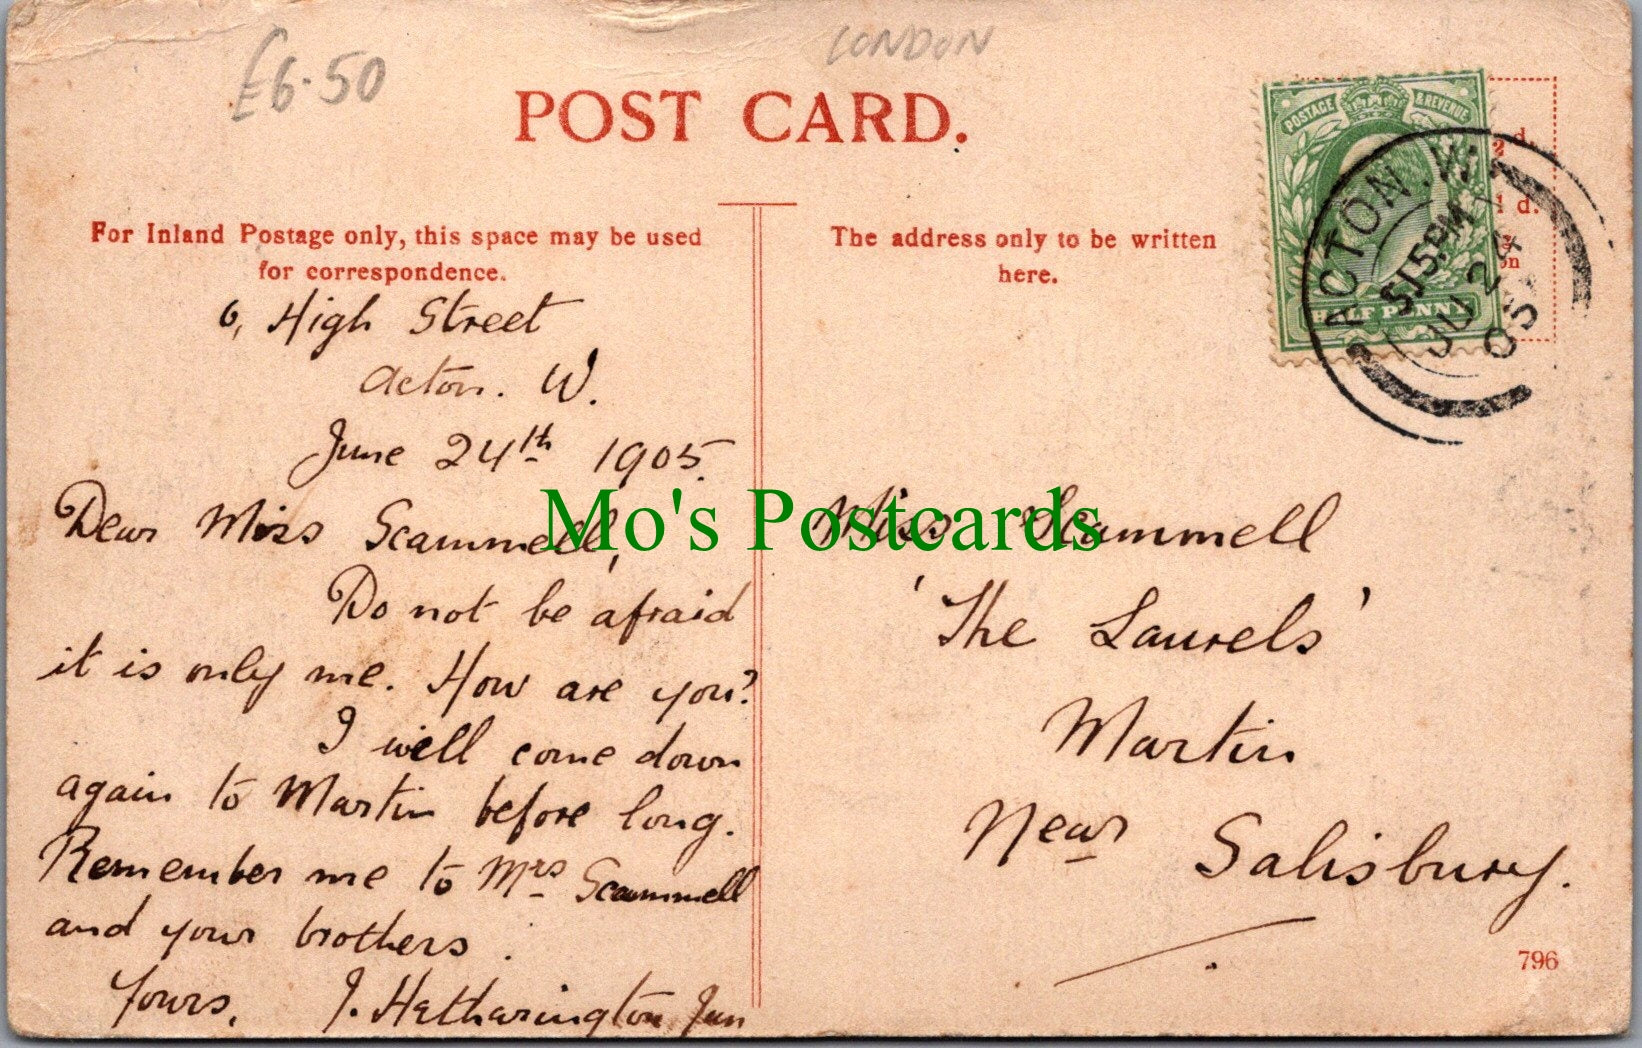 £6.50
LONDON
POST CARD.
For Inland Postage only, this space may be used
for correspondence.
The address only to be written
here.
POSTAGE & REVENUE
HALF PENNY
ACTON. W.
5.15PM
JU 24
05
d.
1 d.
6, High Street
Acton. W.
June 24th 1905.
Dear Miss Scammell,
Do not be afraid
it is only me. How are you?
I will come down
again to Martin before long.
Remember me to Mrs Scammell
and your brothers.
Yours, J. Hetharington Jun
Miss Scammell
'The Laurels'
Martin
Near Salisbury.
796
Mo's Postcards